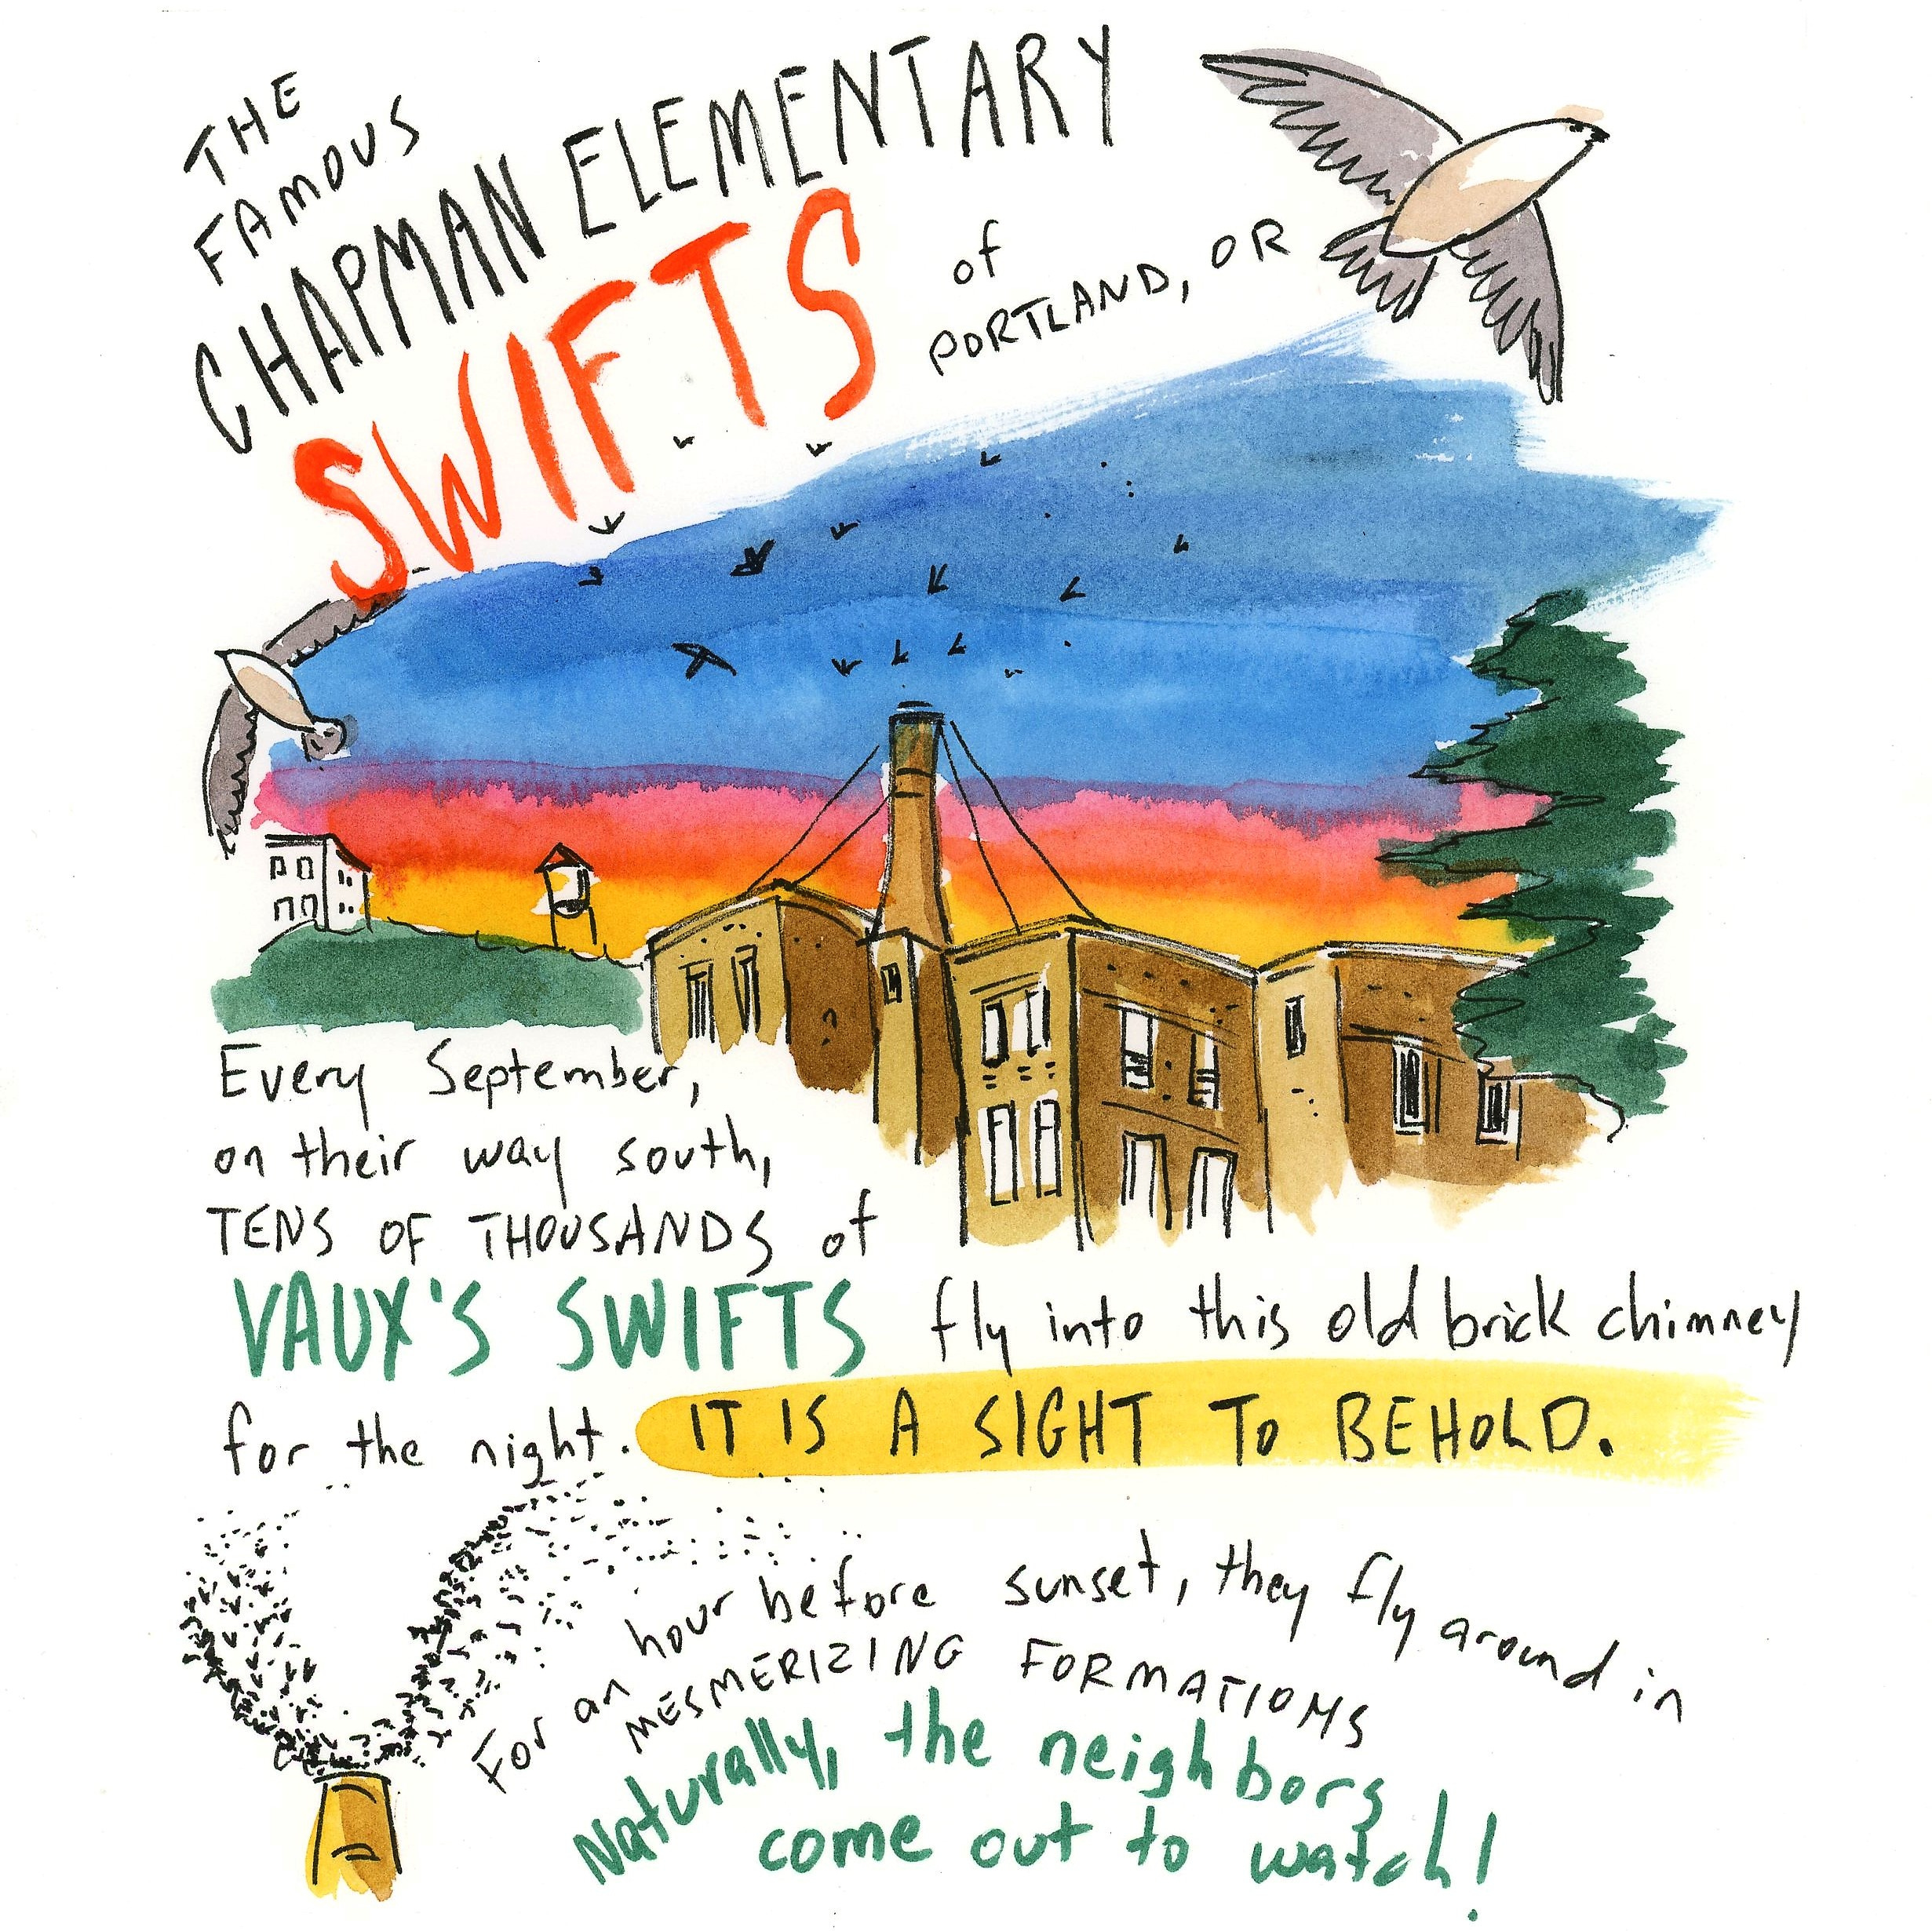 THE
FAMOUS
CHAPMAN ELEMENTARY
SWIFTS
of
PORTLAND, OR
Every September,
on their way south,
TENS OF THOUSANDS of
VAUX'S SWIFTS fly into this old brick chimney
for the night. IT IS A SIGHT TO BEHOLD.
For an hour before sunset, they fly around in
MESMERIZING FORMATIONS
Naturally, the neighbors
come out to watch!